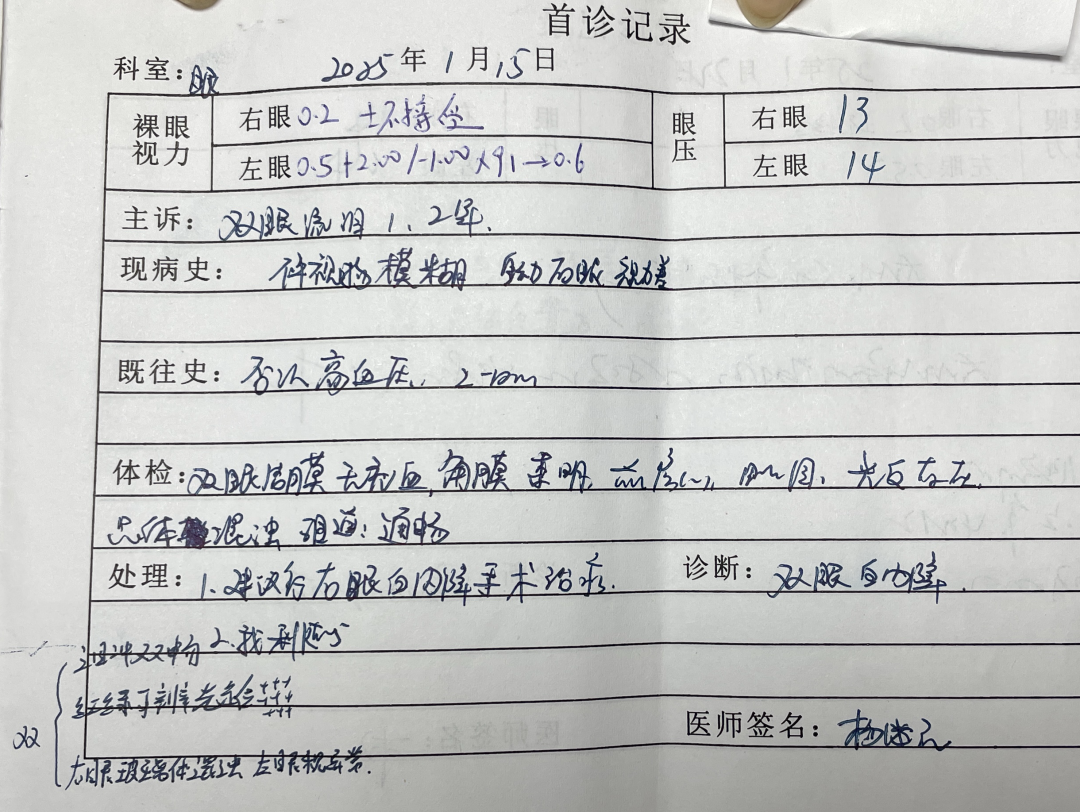 首诊记录
科室：眼 2025年1月15日
裸眼视力 右眼 0.2 ±不接受 眼压 右眼 13
左眼 0.5+2.00/-1.00×91→0.6 左眼 14
主诉：双眼流泪1、2年.
现病史：伴视物模糊 自动右眼视力差
既往史：否认高血压、
体检：双眼结膜无充血, 角膜透明, 光反存在,
晶体混浊 泪道：通畅
处理：1.建议行右眼白内障手术治疗. 诊断：双眼白内障.
2.
红绿可辨光定位 +++
+++
+++
双
右眼玻璃体混浊 左眼
医师签名：杨